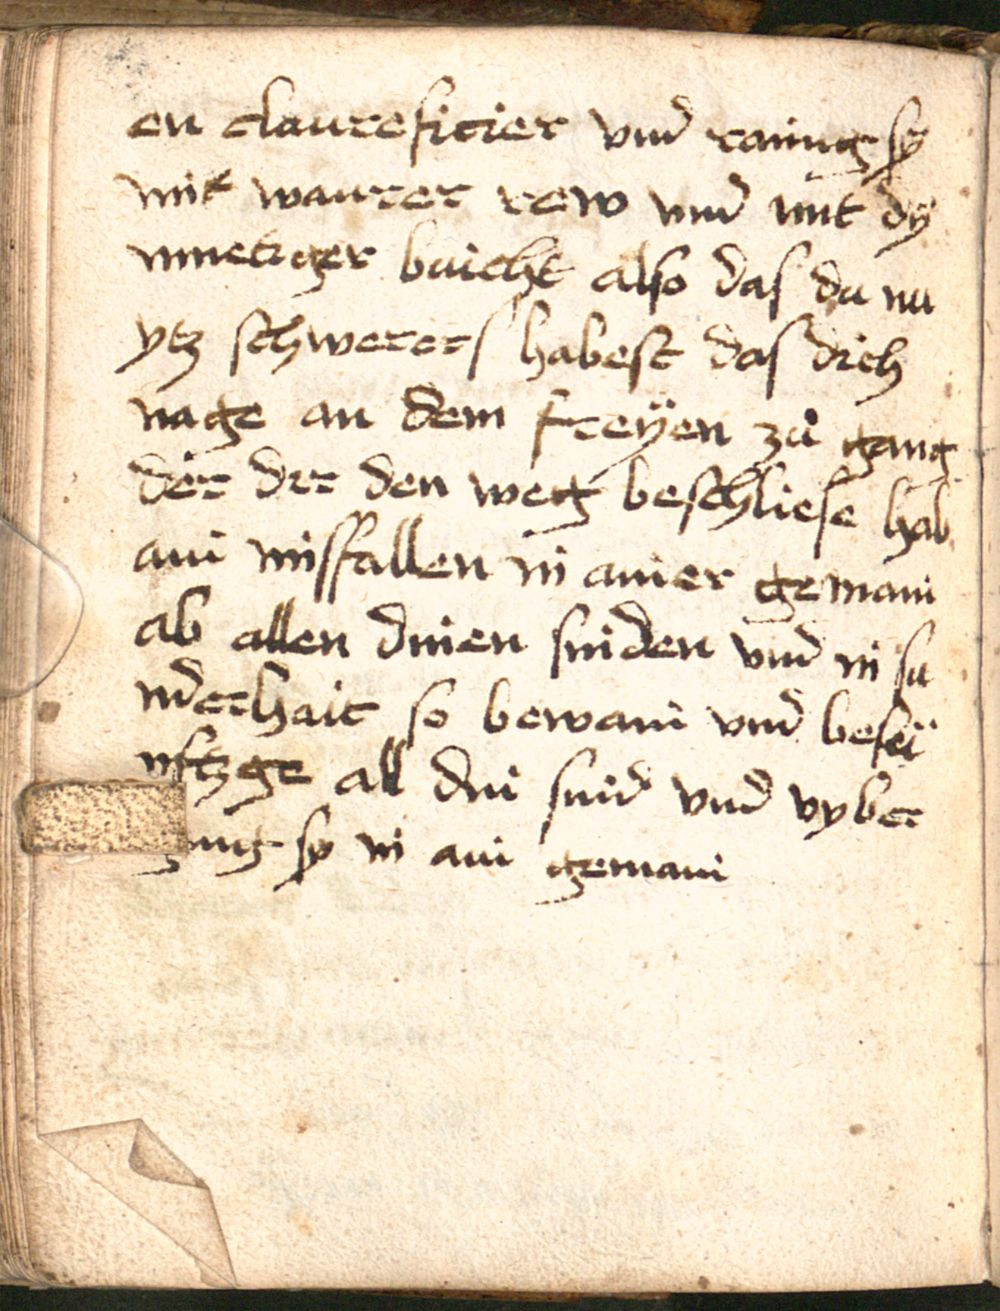 en claurefitier vnd rainig sy
mit waurer rew vnd mit dy
mnetiger buicht also das du nu
ytz schwerers habest das dich
nage an dem freÿen zů gang
der dir den weg beschliese hab
ain missfallen in ainer gemain
ab allen dinen sinden vnd in su
nderhait so bewain vnd beseü
nftzge all din sind vnd vyber
sy in ain gemain